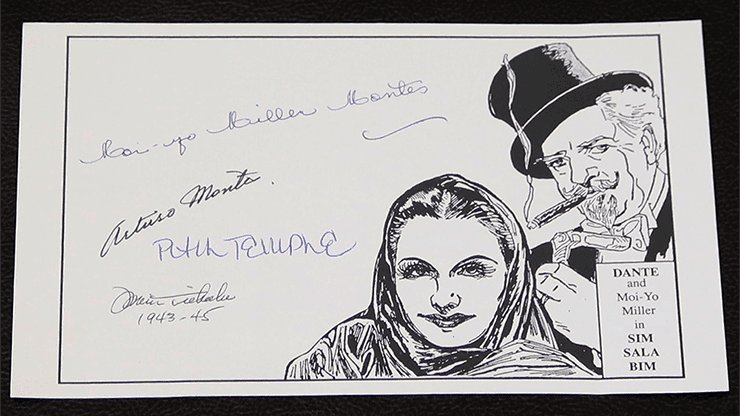 Moi-yo Miller Montes
Arturo Montes.
PHIL TEMPLE
1943-45
DANTE
and
Moi-Yo
Miller
in
SIM
SALA
BIM